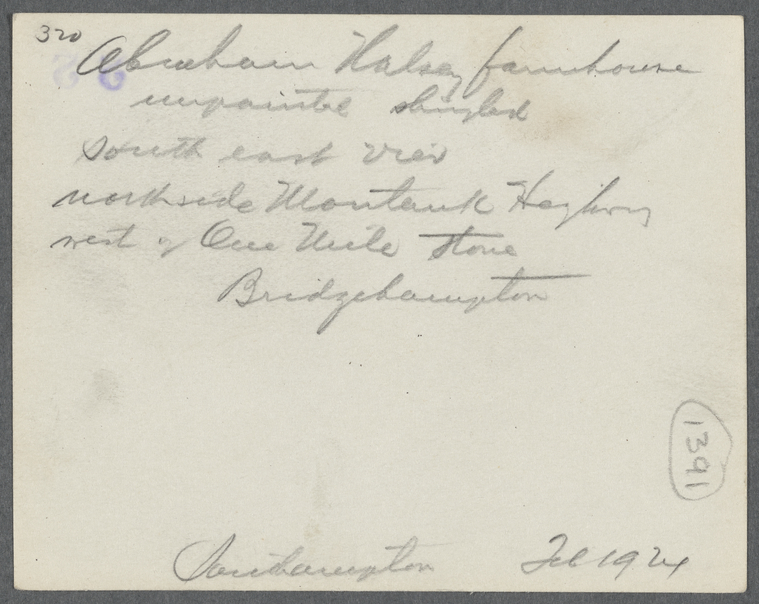 320
Abraham Halsey farmhouse
unpainted shingled
South east view
north side Montauk Highway
west of One Mile Stone
Bridgehampton
1391
Southampton Feb 1924